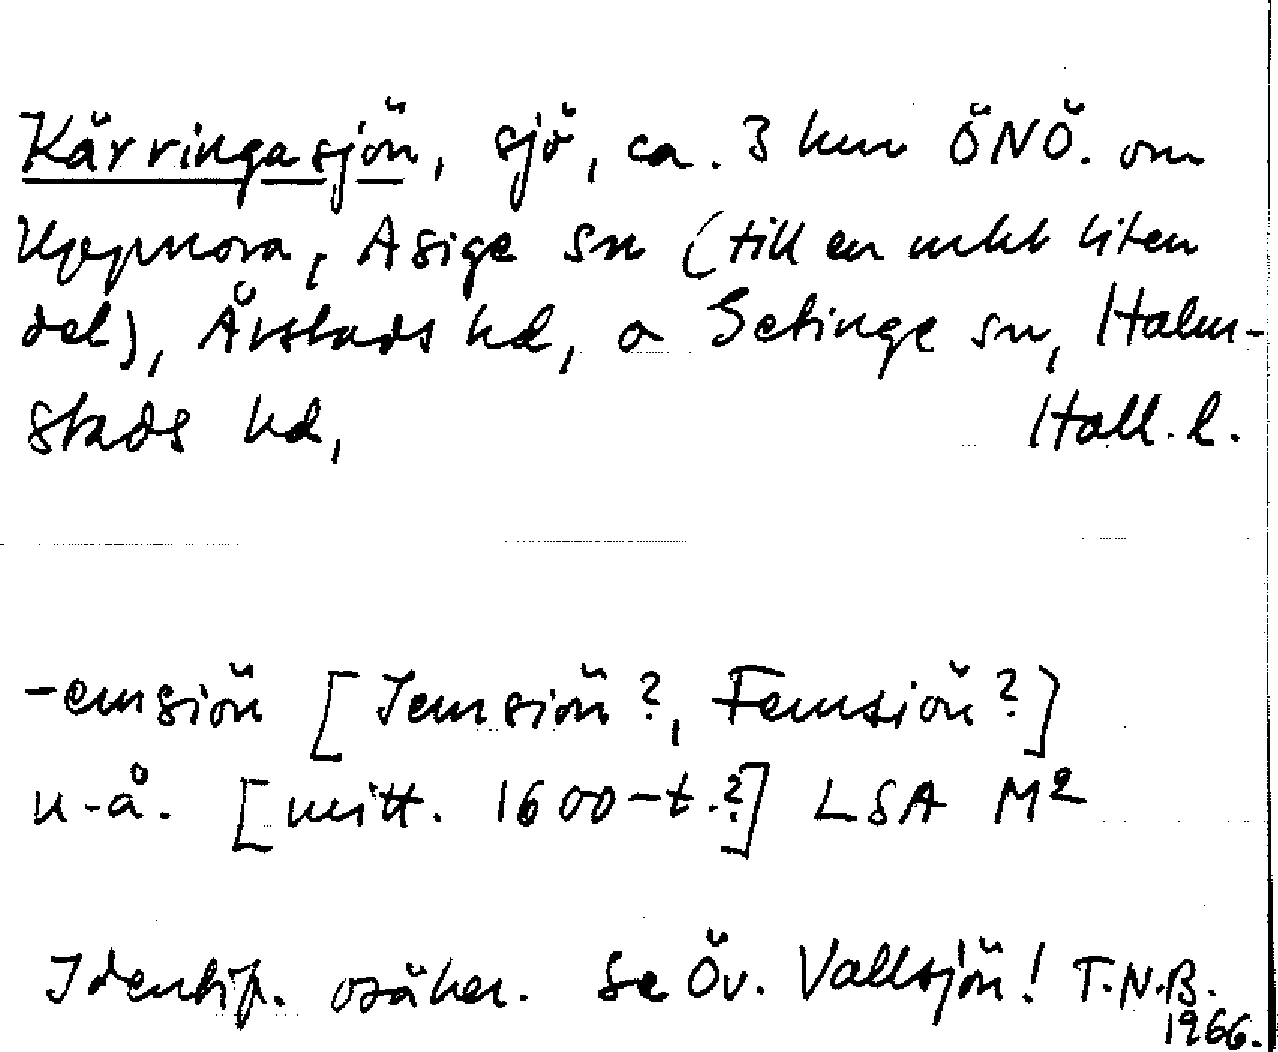 Kärringasjön, sjö, ca. 3 km ÖNÖ. om
Uppmora, Asige sn (till en mkt liten
del), Årstads hd, o Getinge sn, Halm-
stads hd, Hall. l.
-emsiön [Jemsiön?, Femsiön?]
u-å. [mitt. 1600-t.?] LSA M2
Identif. osäker. Se Öv. Vallsjön! T.N.B.
1966.